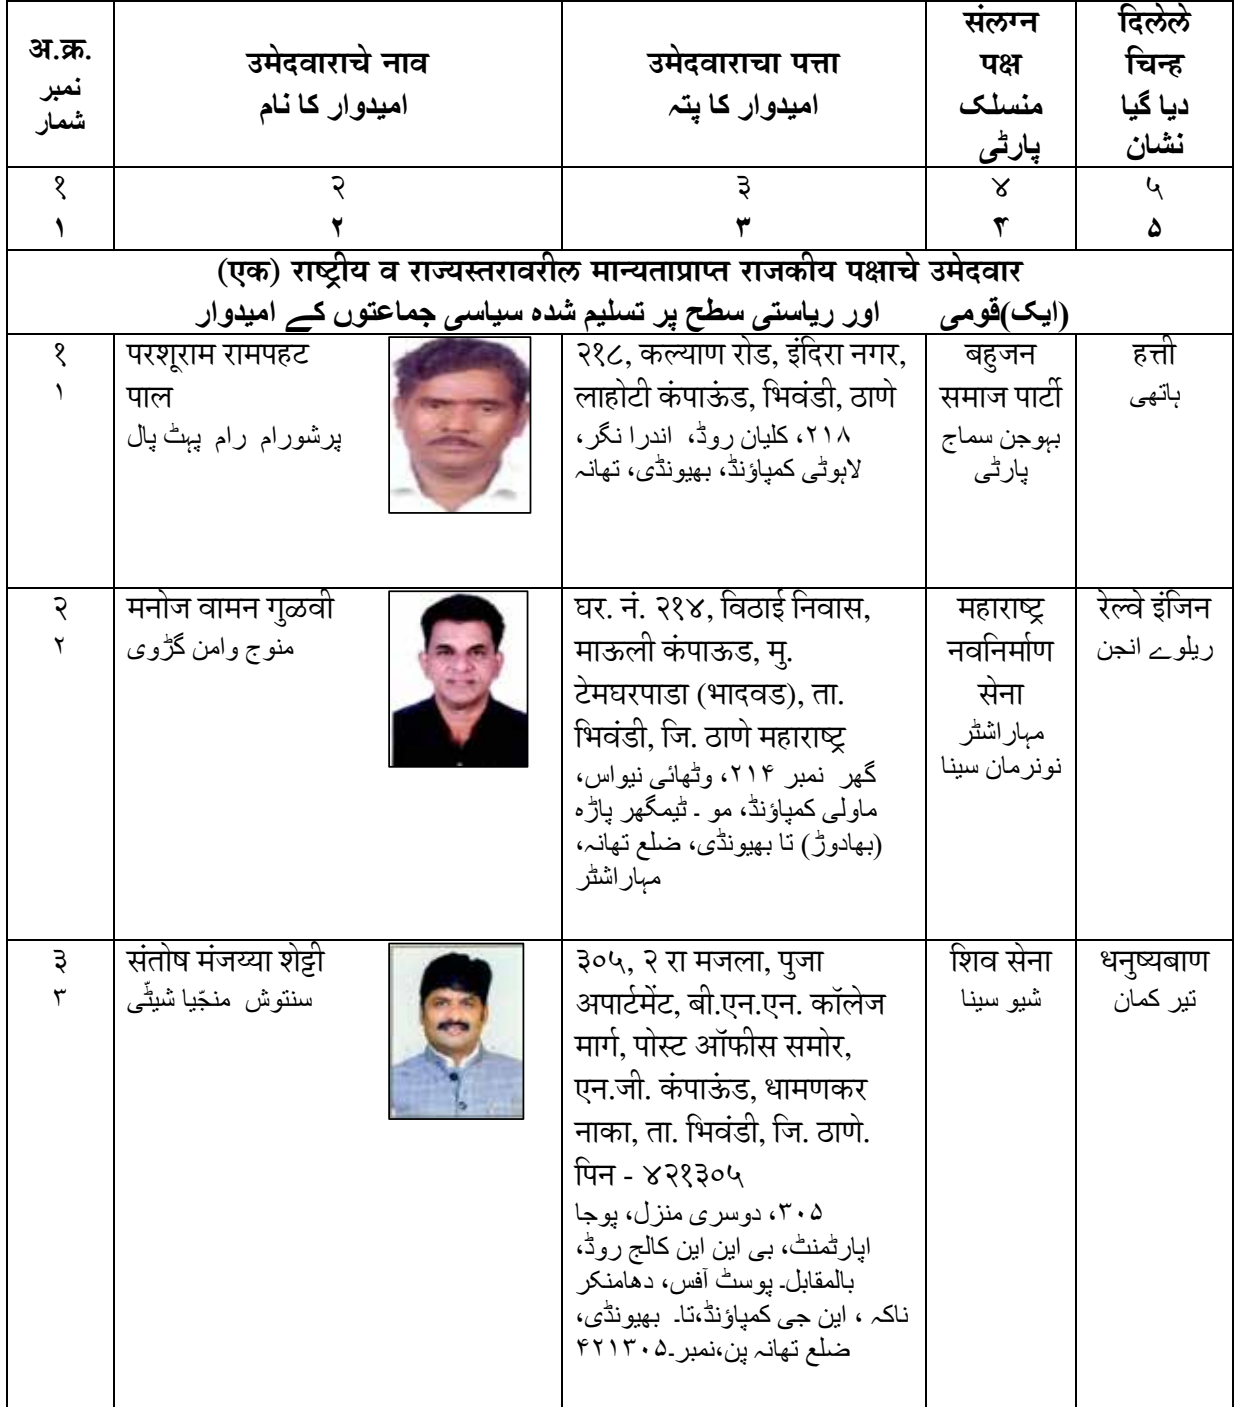 अ.क्र.
نمبر
شمار
उमेदवाराचे नाव
امیدوار کا نام
उमेदवाराचा पत्ता
امیدوار کا پتہ
संलग्न
पक्ष
منسلک
پارٹی
दिलेले
चिन्ह
دیا گیا
نشان
१
۱
२
۲
३
۳
४
۴
५
۵
(एक) राष्ट्रीय व राज्यस्तरावरील मान्यताप्राप्त राजकीय पक्षाचे उमेदवार
(ایک)قومی اور ریاستی سطح پر تسلیم شدہ سیاسی جماعتوں کے امیدوار
१
۱
परशूराम रामपहट
पाल
پرشورام رام پہٹ پال
२१८, कल्याण रोड, इंदिरा नगर,
लाहोटी कंपाऊंड, भिवंडी, ठाणे
۲۱۸، کلیان روڈ، اندرا نگر،
لاہوٹی کمپاؤنڈ، بھیونڈی، تھانہ
बहुजन
समाज पार्टी
بہوجن سماج
پارٹی
हत्ती
ہاتھی
२
۲
मनोज वामन गुळवी
منوج وامن گڑوی
घर. नं. २१४, विठाई निवास,
माऊली कंपाऊड, मु.
टेमघरपाडा (भादवड), ता.
भिवंडी, जि. ठाणे महाराष्ट्र
گھر نمبر ۲۱۴، وٹھائی نیواس،
ماولی کمپاؤنڈ، مو ۔ ٹیمگھر پاڑہ
(بھادوڑ) تا بھیونڈی، ضلع تھانہ،
مہاراشٹر
महाराष्ट्र
नवनिर्माण
सेना
مہاراشٹر
نونرمان سینا
रेल्वे इंजिन
ریلوے انجن
३
۳
संतोष मंजय्या शेट्टी
سنتوش منجّیا شیٹّی
३०५, २ रा मजला, पुजा
अपार्टमेंट, बी.एन.एन. कॉलेज
मार्ग, पोस्ट ऑफीस समोर,
एन.जी. कंपाऊंड, धामणकर
नाका, ता. भिवंडी, जि. ठाणे.
पिन - ४२१३०५
۳۰۵، دوسری منزل، پوجا
اپارٹمنٹ، بی این این کالج روڈ،
بالمقابل۔ پوسٹ آفس، دھامنکر
ناکہ ، این جی کمپاؤنڈ،تا۔ بھیونڈی،
ضلع تھانہ پن،نمبر۔۴۲۱۳۰۵
शिव सेना
شیو سینا
धनुष्यबाण
تیر کمان